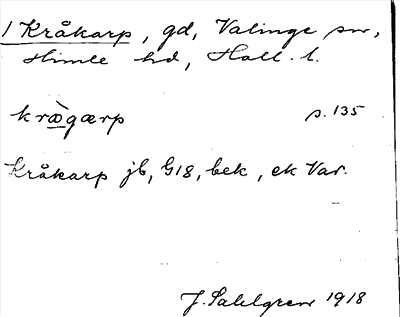 1 Kråkarp, gd, Valinge sn,
Himle hd, Hall. l.
kræ̀gærp s. 135
Kråkarp jb, G18, bek, ek Var.
J. Sahlgren 1918